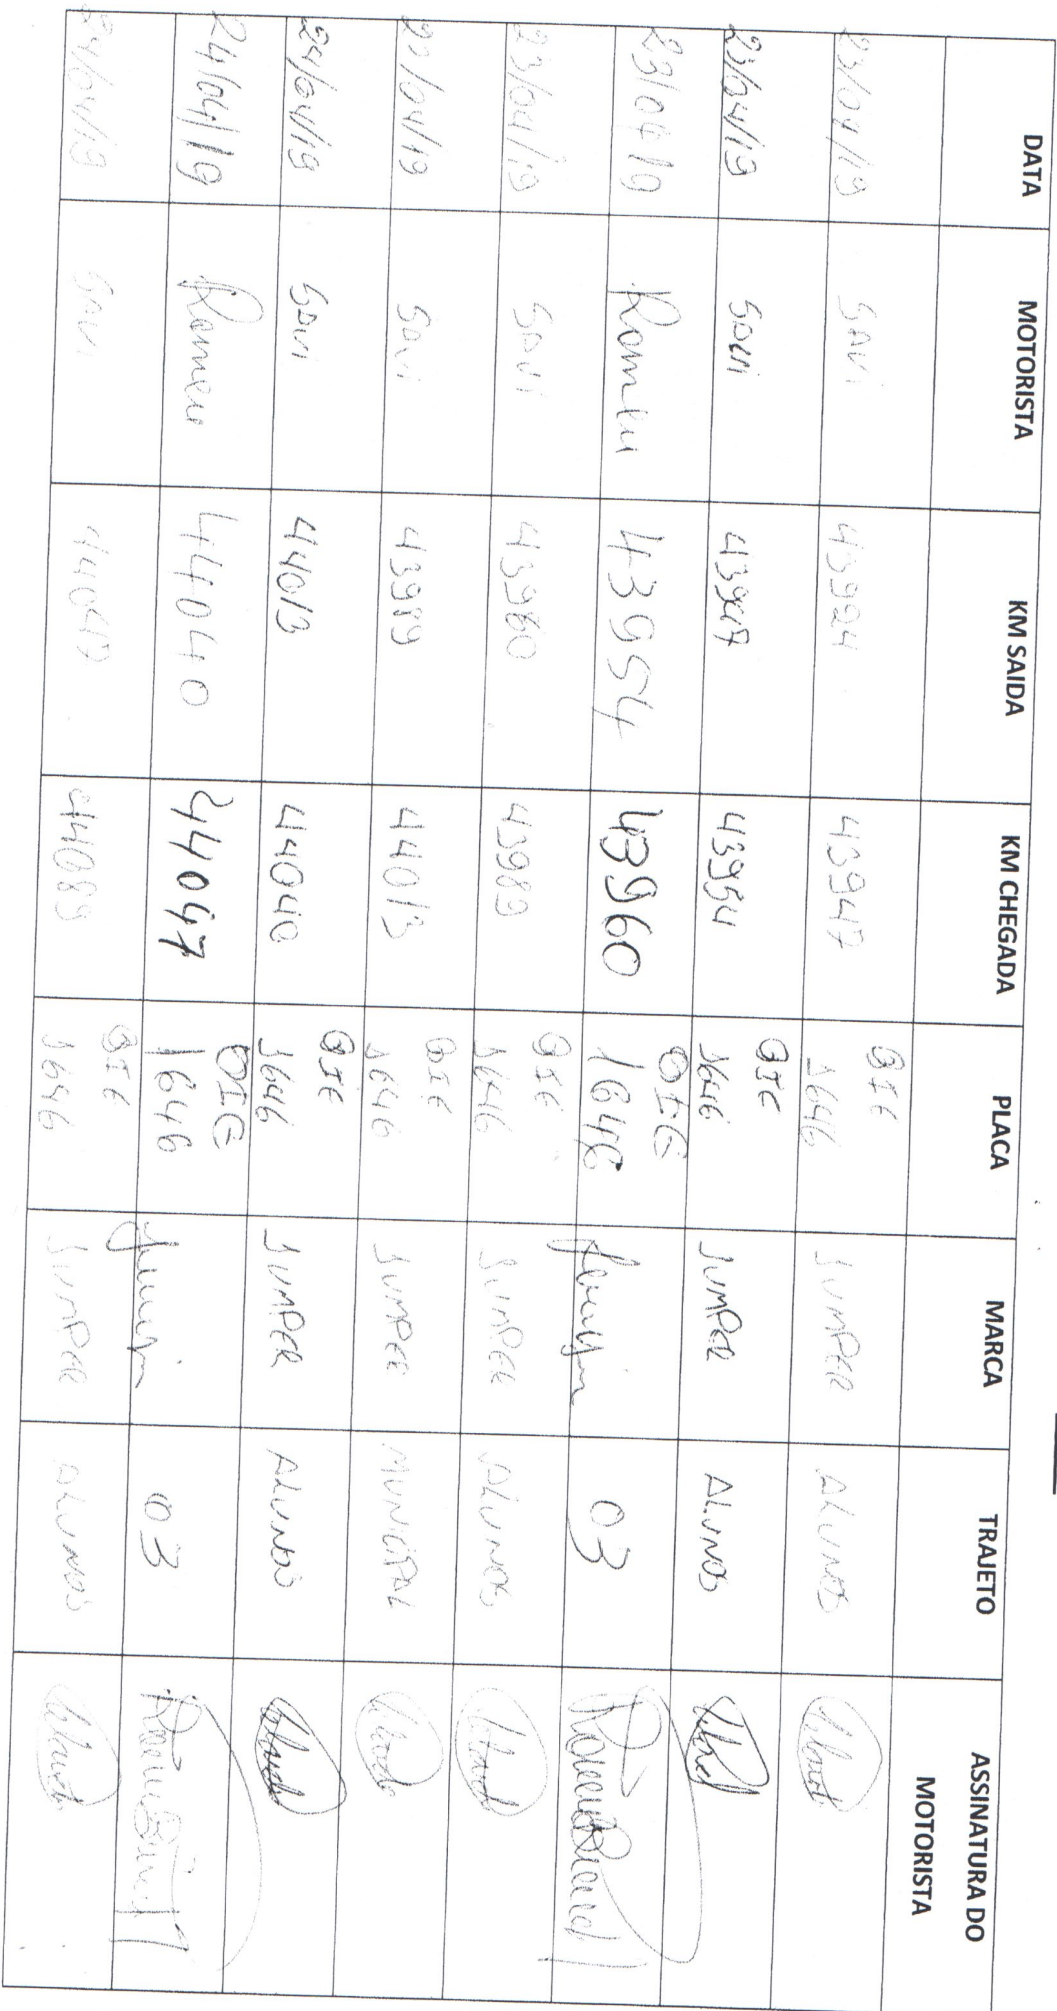 DATA MOTORISTA KM SAIDA KM CHEGADA PLACA MARCA TRAJETO ASSINATURA DO MOTORISTA
23/04/19 SAVI 43924 43947 QIE 1646 JUMPER ALUNOS
23/04/19 SAVI 43947 43954 QIE 1646 JUMPER ALUNOS
23/04/19 Romeu 43954 43960 QIE 1646 03
23/04/19 SAVI 43960 43989 QIE 1646 JUMPER ALUNOS
23/04/19 SAVI 43989 44013 QIE 1646 JUMPER
24/04/19 SAVI 44013 44040 QIE 1646 JUMPER ALUNOS
24/04/19 Romeu 44040 44047 QIE 1646 03
24/04/19 SAVI 44047 44089 QIE 1646 JUMPER ALUNOS